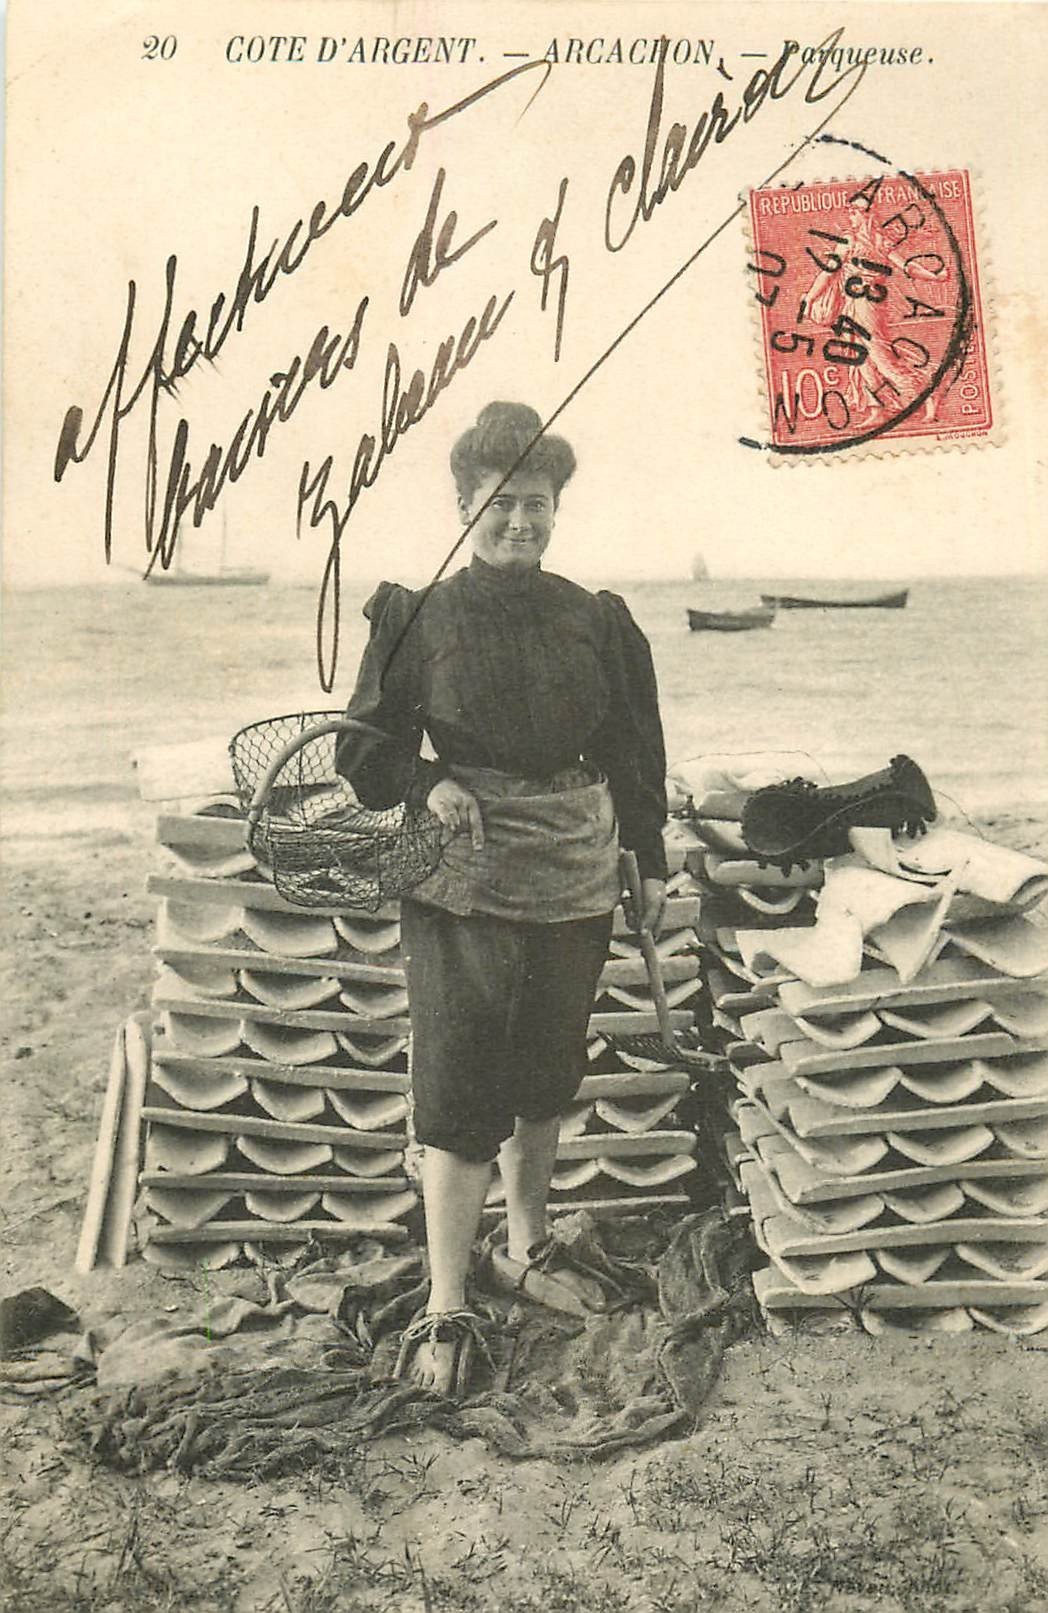 20 COTE D'ARGENT. — ARCACHON. — Parqueuse.
affectueux
baisers de
Zabeau &
REPUBLIQUE FRANÇAISE
POSTES
10c
ARCACHON
13 40
12 -5